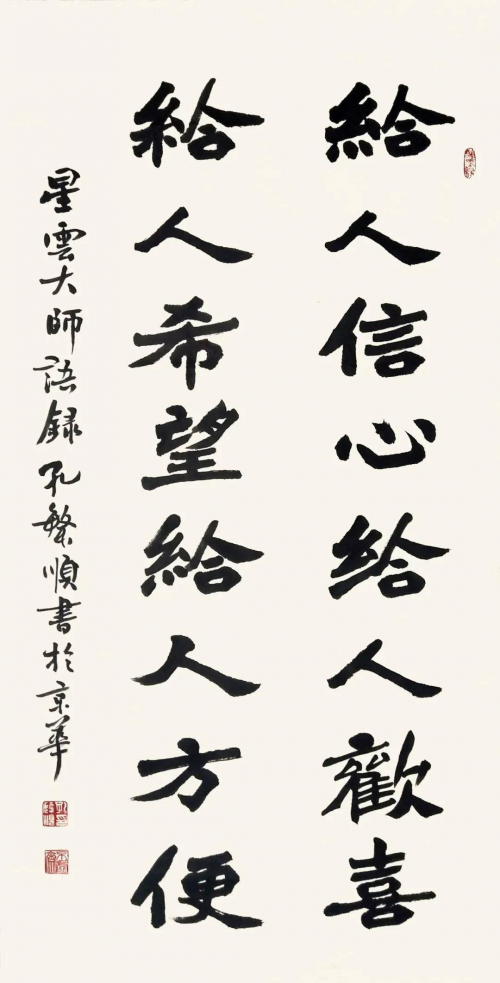 給人信心給人歡喜
給人希望給人方便
星雲大師語録孔繁順書於京華